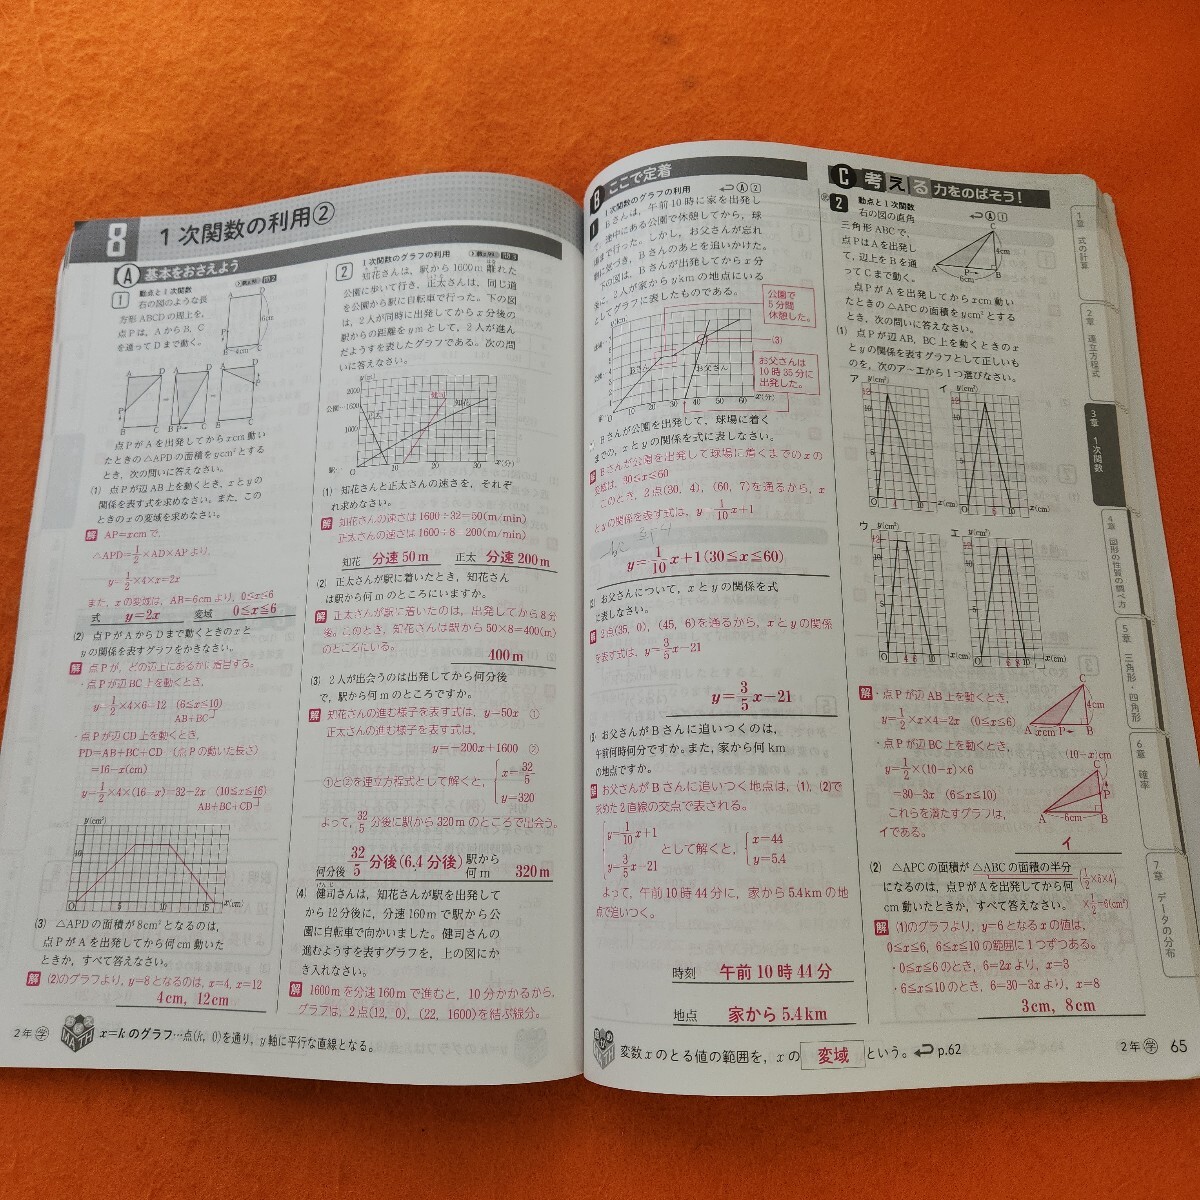 8 1次関数の利用②
A 基本をおさえよう
1 動点と1次関数
右の図のような長
方形ABCDの周上を,
点Pは, AからB, C
を通ってDまで動く。
点PがAを出発してからxcm動い
たときの△APDの面積をycm²とする
とき, 次の問いに答えなさい。
(1) 点Pが辺AB上を動くとき, xとyの
関係を表す式を求めなさい。また, この
ときのxの変域を求めなさい。
解 AP=xcmで,
△APD=1/2×AD×APより,
y=1/2×4×x=2x
また, xの変域は, AB=6cmより, 0≦x≦6
式 y=2x 変域 0≦x≦6
(2) 点PがAからDまで動くときのxと
yの関係を表すグラフをかきなさい。
解 点Pが, どの辺上にあるかに着目する。
・点Pが辺BC上を動くとき,
y=1/2×4×6=12 (6≦x≦10)
AB+BC
・点Pが辺CD上を動くとき,
PD=AB+BC+CD-(点Pの動いた長さ)
=16-x(cm)
y=1/2×4×(16-x)=32-2x (10≦x≦16)
AB+BC+CD
y(cm²)
10
O 5 10 15 x(cm)
(3) △APDの面積が8cm²となるのは,
点PがAを出発してから何cm動いた
ときか, すべて答えなさい。
解 (2)のグラフより, y=8となるのは, x=4, x=12
4cm, 12cm
2 1次関数のグラフの利用
知花さんは, 駅から1600m離れた
公園に歩いて行き, 正太さんは, 同じ道
を公園から駅に自転車で行った。下の図
は, 2人が同時に出発してからx分後の
駅からの距離をymとして, 2人が進ん
だようすを表したグラフである。次の問
いに答えなさい。
y(m)
2000
公園…1600
正太 健司 知花
駅… O 10 20 30 x(分)
(1) 知花さんと正太さんの速さを, それぞ
れ求めなさい。
解 知花さんの速さは1600÷32=50(m/min)
正太さんの速さは1600÷8=200(m/min)
知花 分速50m 正太 分速200m
(2) 正太さんが駅に着いたとき, 知花さん
は駅から何mのところにいますか。
解 正太さんが駅に着いたのは, 出発してから8分
後。このとき, 知花さんは駅から50×8=400(m)
のところにいる。
400m
(3) 2人が出会うのは出発してから何分後
で, 駅から何mのところですか。
解 知花さんの進む様子を表す式は, y=50x ①
正太さんの進む様子を表す式は,
y=-200x+1600 ②
①と②を連立方程式として解くと, x=32/5
y=320
よって, 32/5分後に駅から320mのところで出会う。
何分後 32/5分後(6.4分後) 駅から何m 320m
(4) 健司さんは, 知花さんが駅を出発して
から12分後に, 分速160mで駅から公
園に自転車で向かいました。健司さんの
進むようすを表すグラフを, 上の図にか
き入れなさい。
解 1600mを分速160mで進むと, 10分かかるから,
グラフは, 2点(12, 0), (22, 1600)を結ぶ線分。
2年 学 MATH x=kのグラフ…点(k, 0)を通り, y軸に平行な直線となる。
B ここで定着
1 1次関数のグラフの利用 A 2
Bさんは, 午前10時に家を出発し
て, 途中にある公園で休憩してから, 球
場まで行った。しかし, お父さんが忘れ
物に気づき, Bさんのあとを追いかけた。
の図は, Bさんが家を出発してからx分
後に, 2人が家からykmの地点にいる
としてグラフに表したものである。
公園で
5分間
休憩した。
(3)
お父さんは
10時35分に
出発した。
y(km)
Bさん お父さん
O 10 20 30 40 50 60 x(分)
Bさんが公園を出発して, 球場に着く
までの, xとyの関係を式に表しなさい。
解 Bさんが公園を出発して球場に着くまでのxの
変域は, 30≦x≦60
このとき, 2点(30, 4), (60, 7)を通るから, x
とyの関係を表す式は, y=1/10x+1
y=1/10x+1(30≦x≦60)
お父さんについて, xとyの関係を式
に表しなさい。
解 2点(35, 0), (45, 6)を通るから, xとyの関係
を表す式は, y=3/5x-21
y=3/5x-21
お父さんがBさんに追いつくのは,
午前何時何分ですか。また, 家から何km
の地点ですか。
解 お父さんがBさんに追いつく地点は, (1), (2)で
求めた2直線の交点で表される。
y=1/10x+1
y=3/5x-21
として解くと, x=44
y=5.4
よって, 午前10時44分に, 家から5.4kmの地
点で追いつく。
時刻 午前10時44分
地点 家から5.4km
C 考える力をのばそう!
2 動点と1次関数 A 1
右の図の直角
三角形ABCで,
点PはAを出発し
て, 辺上をBを通
ってCまで動く。
点PがAを出発してからxcm動い
たときの△APCの面積をycm²とする
とき, 次の問いに答えなさい。
(1) 点Pが辺AB, BC上を動くときのx
とyの関係を表すグラフとして正しいも
のを, 次のア〜エから1つ選びなさい。
ア y(cm²) イ y(cm²)
ウ y(cm²) エ y(cm²)
解 ・点Pが辺AB上を動くとき,
y=1/2×x×4=2x (0≦x≦6)
・点Pが辺BC上を動くとき,
y=1/2×(10-x)×6
=30-3x (6≦x≦10)
これらを満たすグラフは,
イである。
イ
(10-x)cm
(2) △APCの面積が△ABCの面積の半分
になるのは, 点PがAを出発してから何
cm動いたときか, すべて答えなさい。
(1/2×6×4)
×1/2=6(cm²)
解 (1)のグラフより, y=6となるxの値は,
0≦x≦6, 6≦x≦10の範囲に1つずつある。
・0≦x≦6のとき, 6=2xより, x=3
・6≦x≦10のとき, 6=30-3xより, x=8
3cm, 8cm
変数xのとる値の範囲を, xの 変域 という。 p.62
2年 学 65
1章 式の計算
2章 連立方程式
3章 1次関数
4章 図形の性質の調べ方
5章 三角形・四角形
6章 確率
7章 データの分布